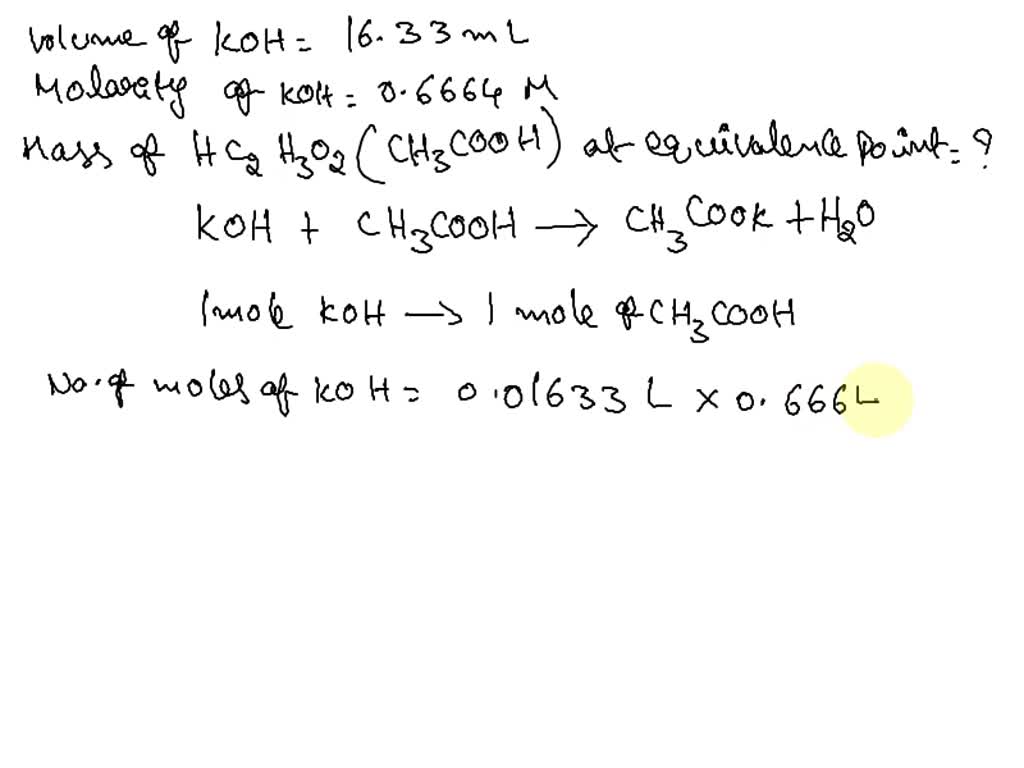 Volume of KOH = 16.33 mL
Molarity of KOH = 0.6664 M
Mass of HC2H3O2 (CH3COOH) at equivalence point = ?
KOH + CH3COOH → CH3COOK + H2O
1 mole KOH → 1 mole of CH3COOH
No. of moles of KOH = 0.01633 L × 0.6664